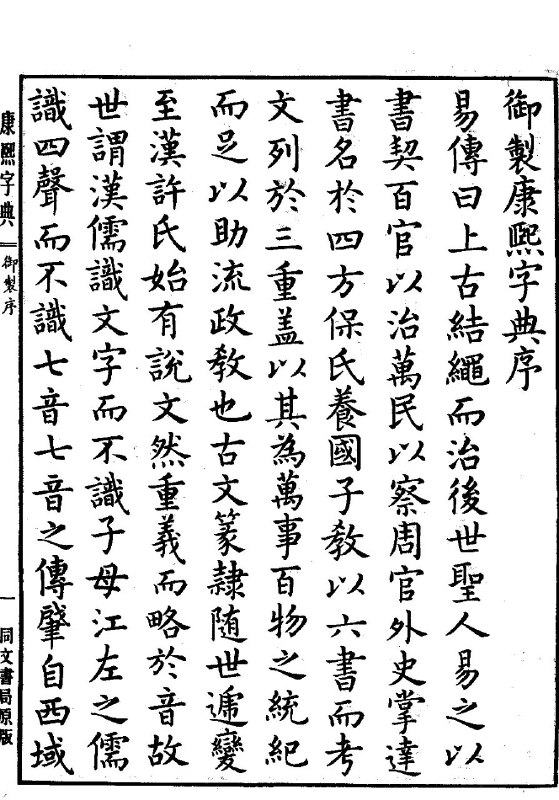 御製康熙字典序
易傳曰上古結繩而治後世聖人易之以
書契百官以治萬民以察周官外史掌達
書名於四方保氏養國子教以六書而考
文列於三重盖以其為萬事百物之統紀
而足以助流政教也古文篆隸随世遞變
至漢許氏始有說文然重義而略於音故
世謂漢儒識文字而不識子母江左之儒
識四聲而不識七音七音之傳肇自西域
康熙字典 御製序 一 同文書局原版